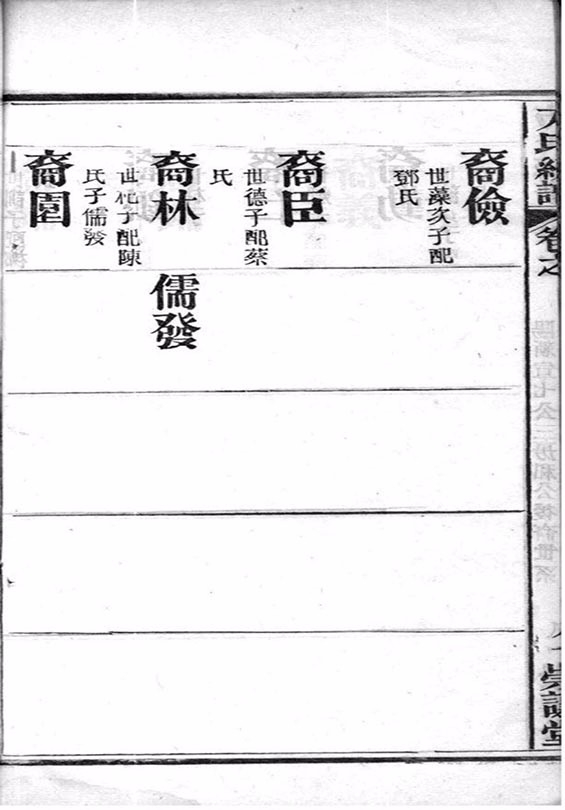 裔儉
世藻次子配
鄧氏
裔臣
世德子配蔡
氏
裔林
世杞子配陳
氏子儒發
儒發
裔園
氏續譜
卷之